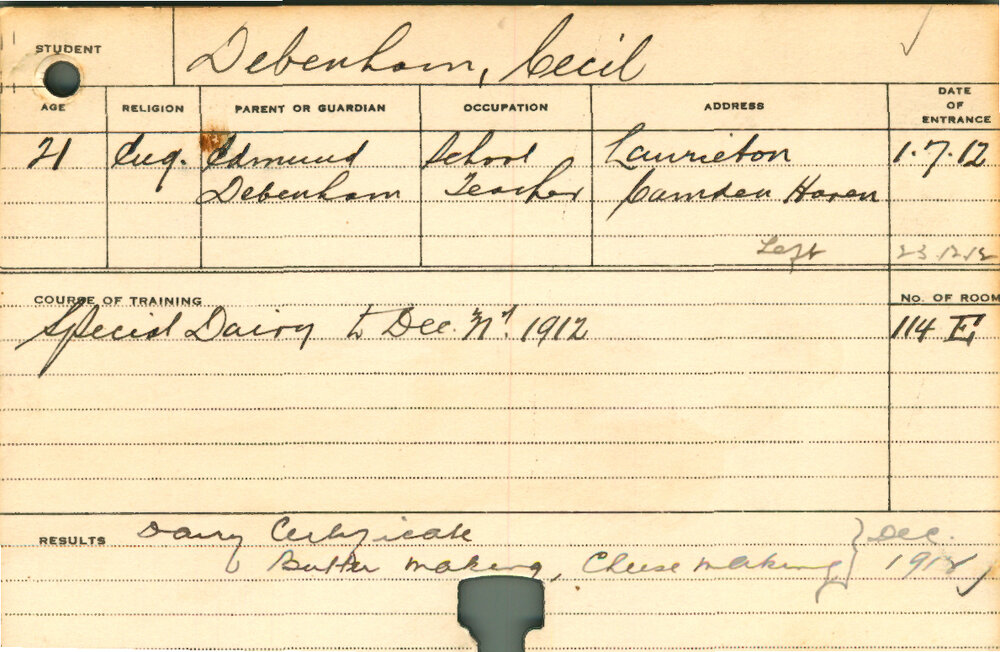 STUDENT Debenham, Cecil
AGE RELIGION PARENT OR GUARDIAN OCCUPATION ADDRESS DATE OF ENTRANCE
21 Eng. Edmund School Laurieton 1.7.12
Debenham Teacher Camden Haven
Left 23.12.12
COURSE OF TRAINING No. OF ROOM
Special Dairy to Dec. 1912 114 E
RESULTS Dairy Certificate Dec.
Butter making, Cheese making 1912